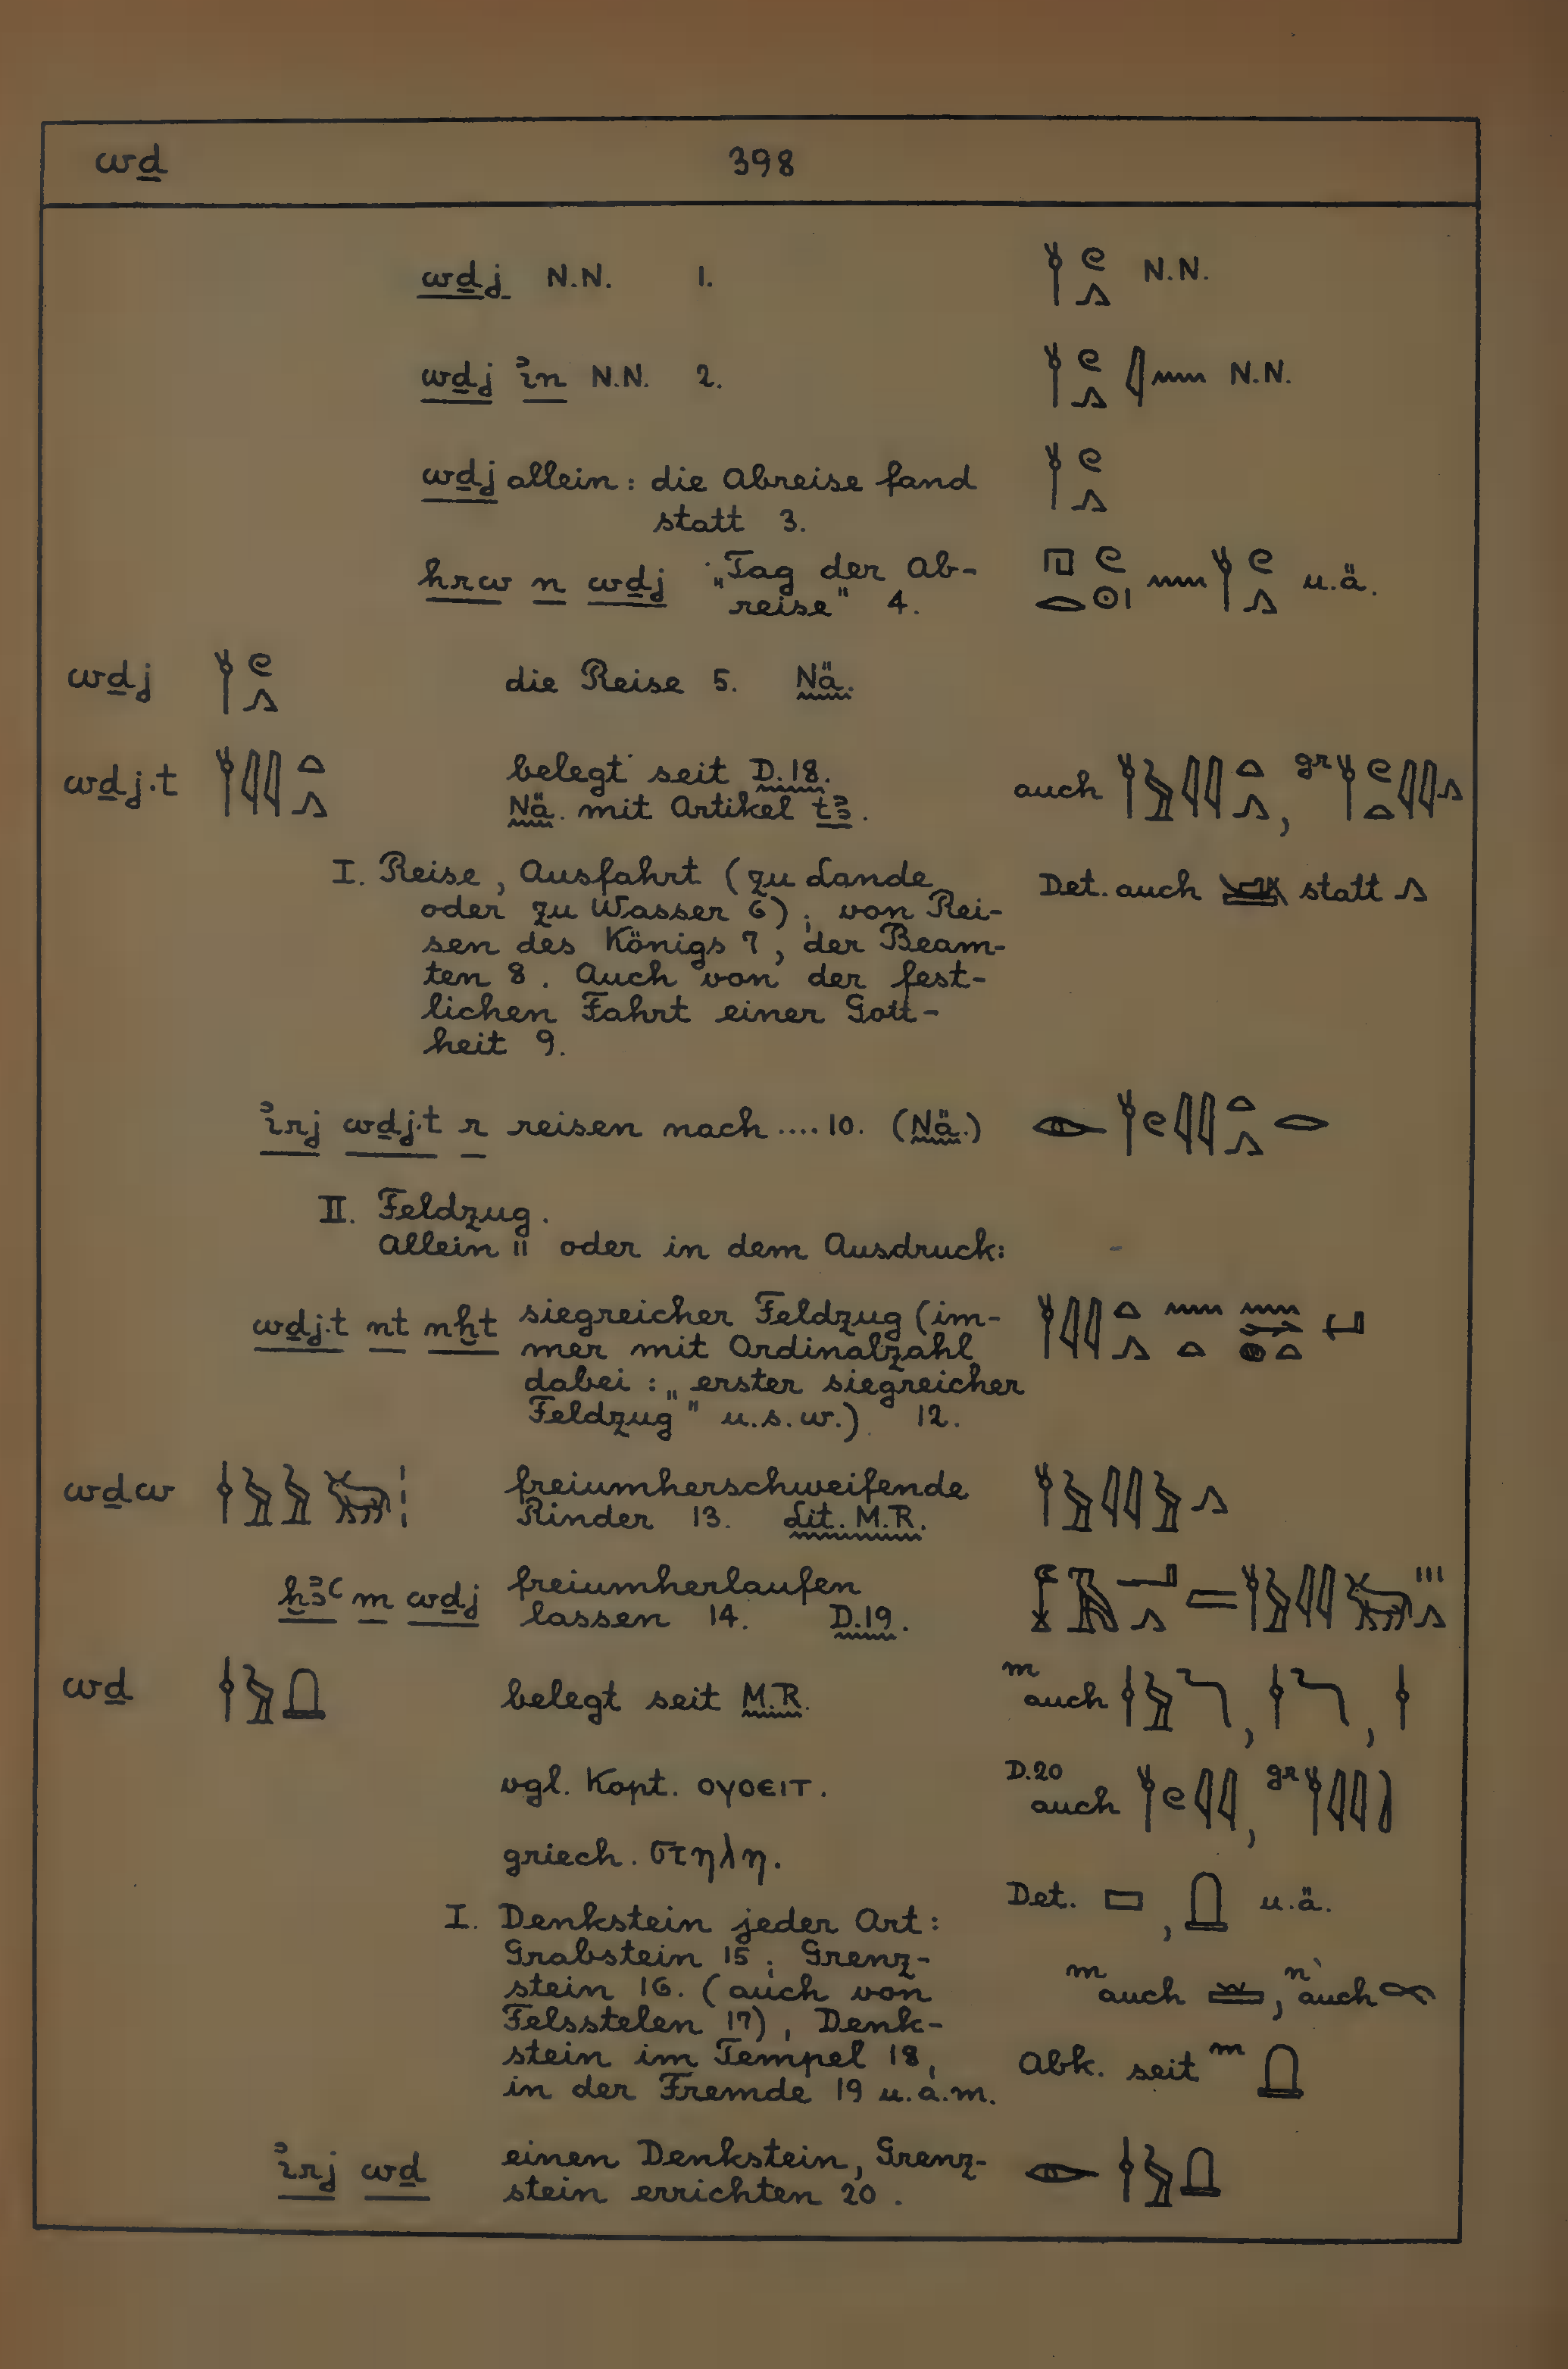 wḏ 398
wḏj N.N. 1. N.N.
wḏj ı͗n N.N. 2. N.N.
wḏj allein: die Abreise fand
statt 3.
hrw n wḏj „Tag der Ab-
reise" 4. u.ä.
wḏj die Reise 5. Nä.
wḏj.t belegt seit D.18. auch , gr
Nä. mit Artikel tꜣ.
I. Reise, Ausfahrt (zu Lande
oder zu Wasser 6); von Rei- Det. auch statt
sen des Königs 7, der Beam-
ten 8. Auch von der fest-
lichen Fahrt einer Gott-
heit 9.
ı͗rj wḏj.t r reisen nach .... 10. (Nä.)
II. Feldzug.
Allein 11 oder in dem Ausdruck:
wḏj.t nt nḫt siegreicher Feldzug (im-
mer mit Ordinalzahl
dabei: „erster siegreicher
Feldzug" u.s.w.) 12.
wḏw freiumherschweifende
Rinder 13. Lit. M.R.
ẖꜣꜥ m wḏj freiumherlaufen
lassen 14. D.19.
wḏ belegt seit M.R. m auch , ,
vgl. Kopt. ⲟⲩⲟⲉⲓⲧ. D.20 auch , gr
griech. στηλη.
I. Denkstein jeder Art: Det. , u.ä.
Grabstein 15; Grenz-
stein 16. (auch von m auch , n auch
Felsstelen 17), Denk-
stein im Tempel 18, Abk. seit m
in der Fremde 19 u.a.m.
ı͗rj wḏ einen Denkstein, Grenz-
stein errichten 20.